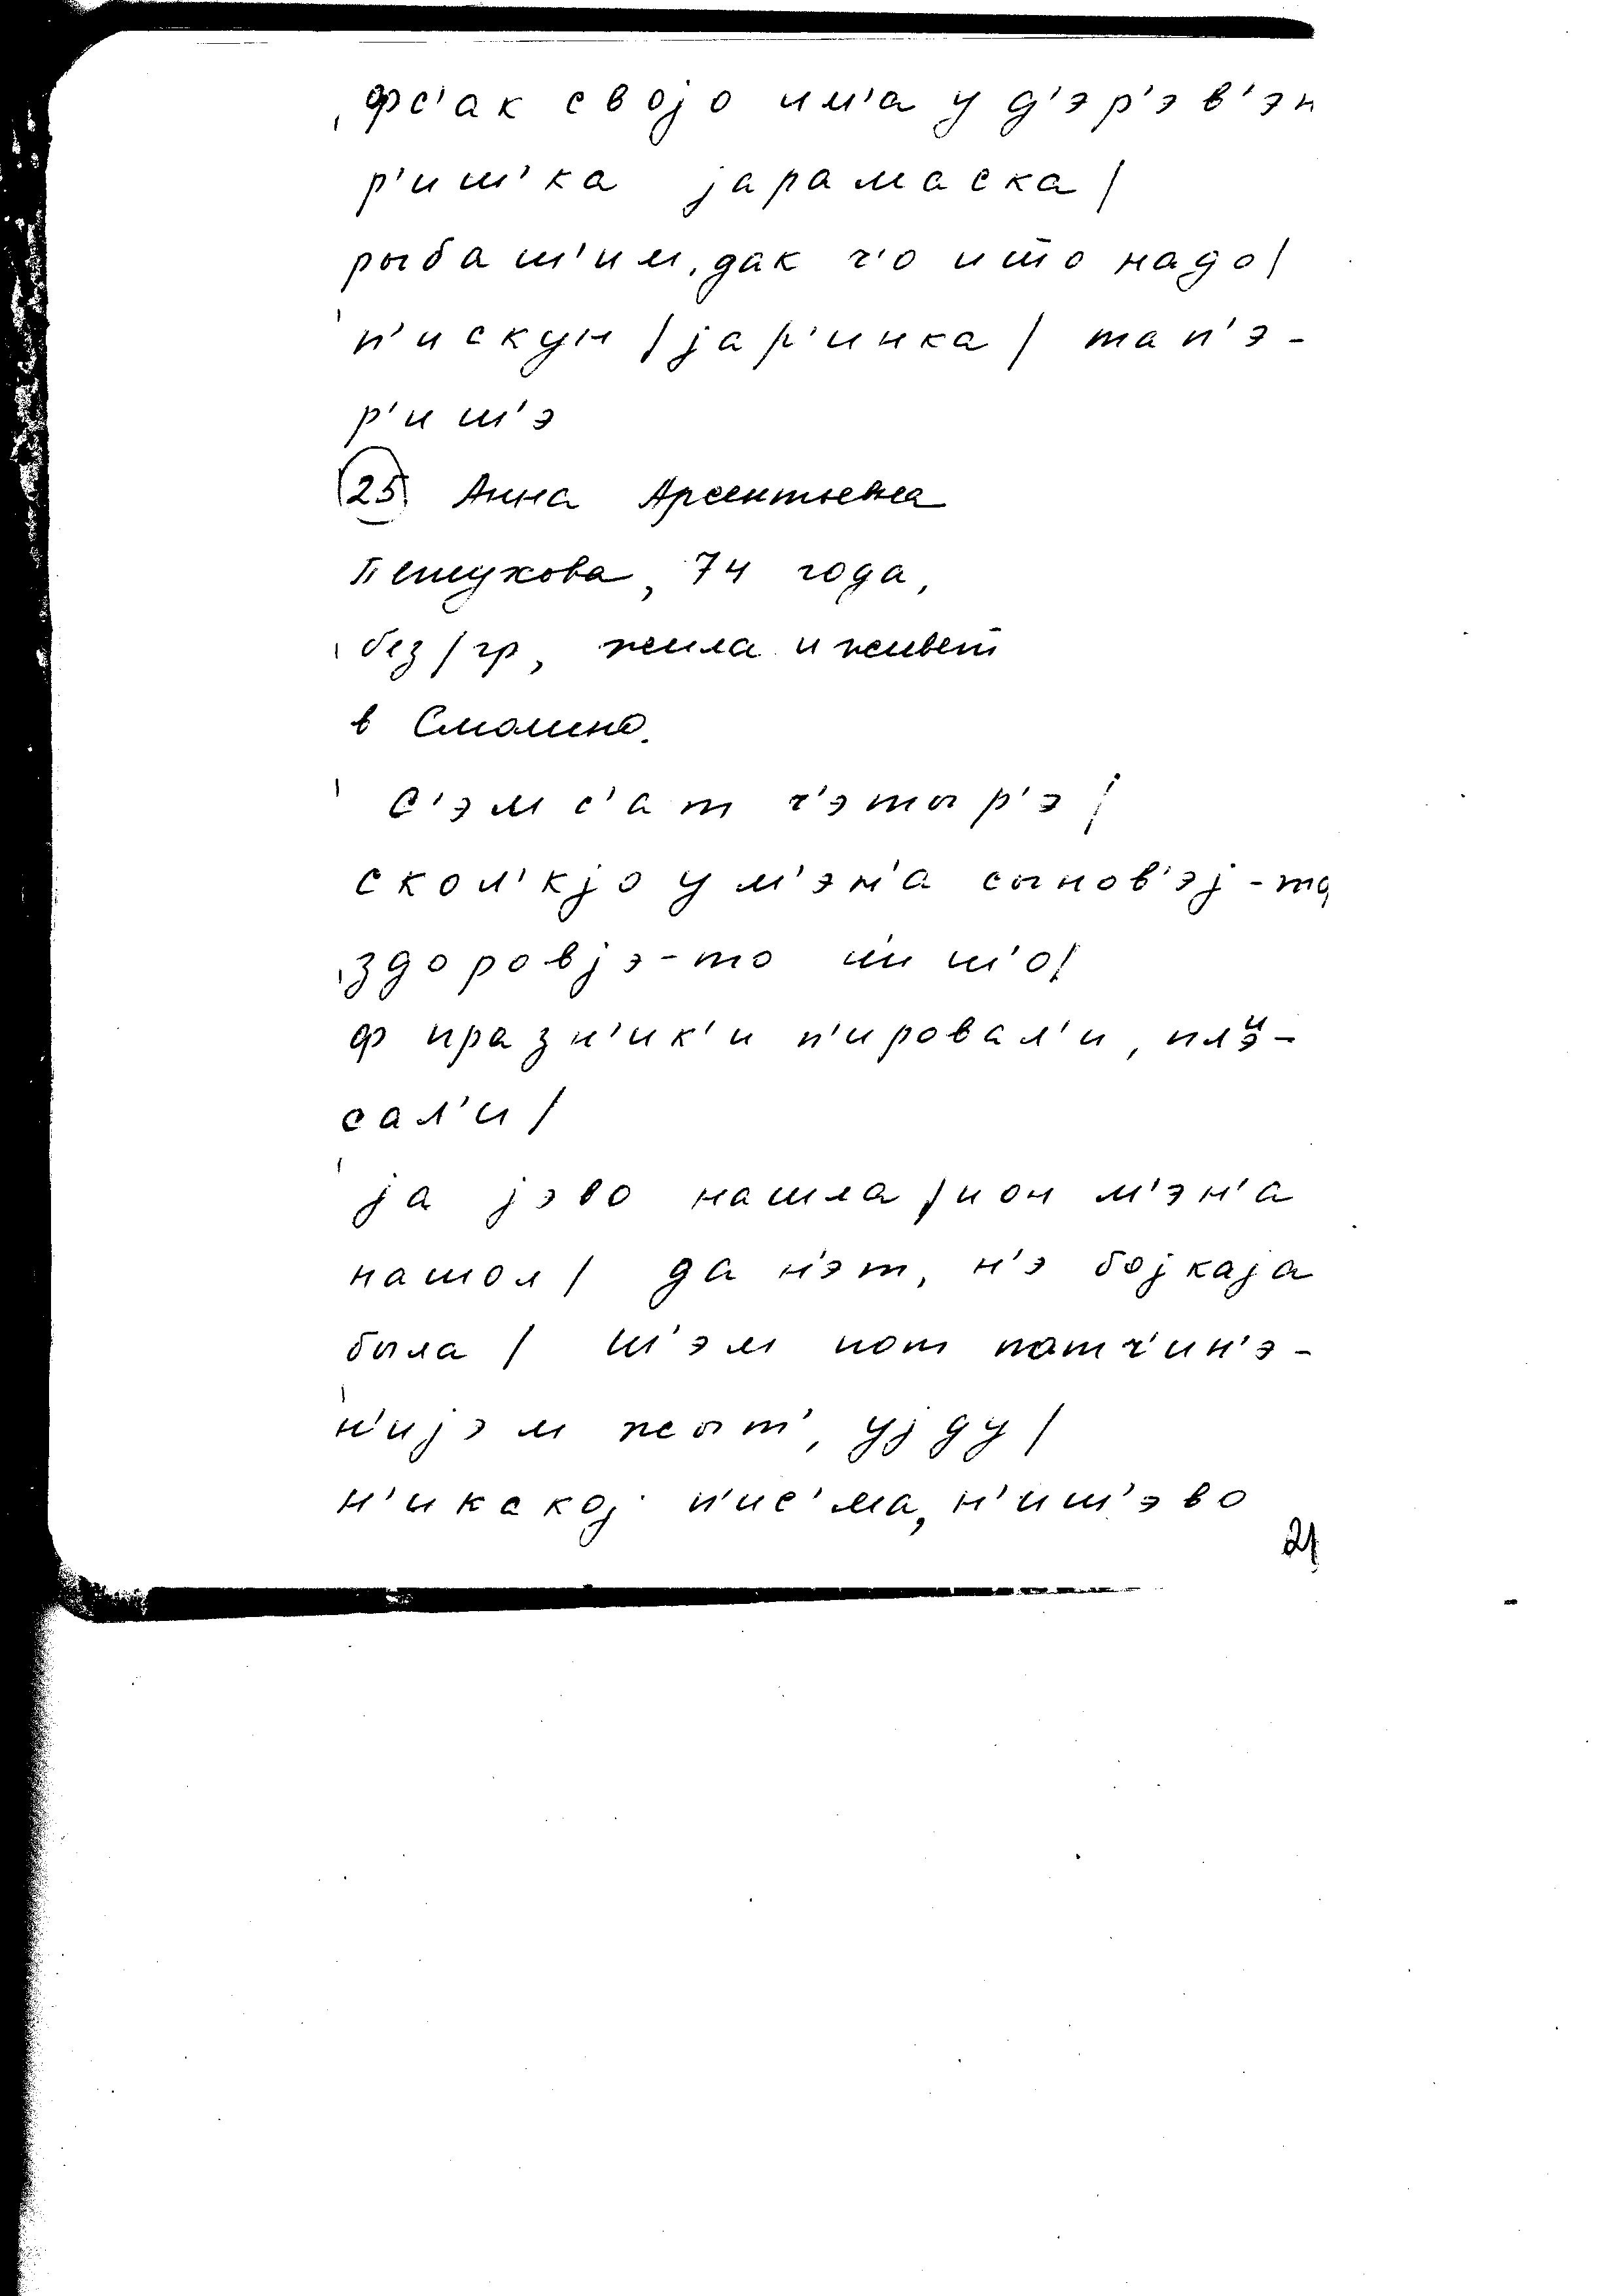 фс'ак својо им'а у д'эр'эв'эн
р'иш'ка јарамаска /
рыбаш'им, дак ч'о што надо /
п'искун / јар'инка / тап'э-
р'иш'э
25 Анна Арсентьевна
Петухова, 74 года,
без/гр, жила и живет
в Смолино.
с'эмс'ат ч'этыр'э /
скол'кјо у м'эн'а сынов'эј-то,
здоровјэ-то ш'о /
ф празн'ик'и п'ировал'и, плэ-
сал'и /
ја јэво нашла / и он м'эн'а
нашол / да н'эт, н'э бојкаја
была / ш'эм пот потч'ин'э-
н'ијэм жыт', ујду /
н'икакој п'ис'ма, н'иш'эво
21